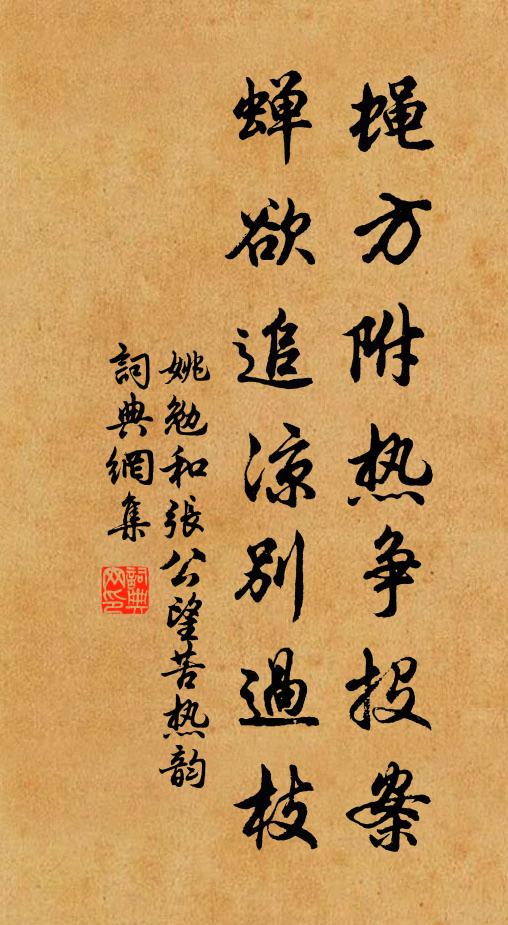 蝇方附热争投案
蝉欲追凉别過枝
姚勉和張公望苦热韵
詞典網集
詞典
网印